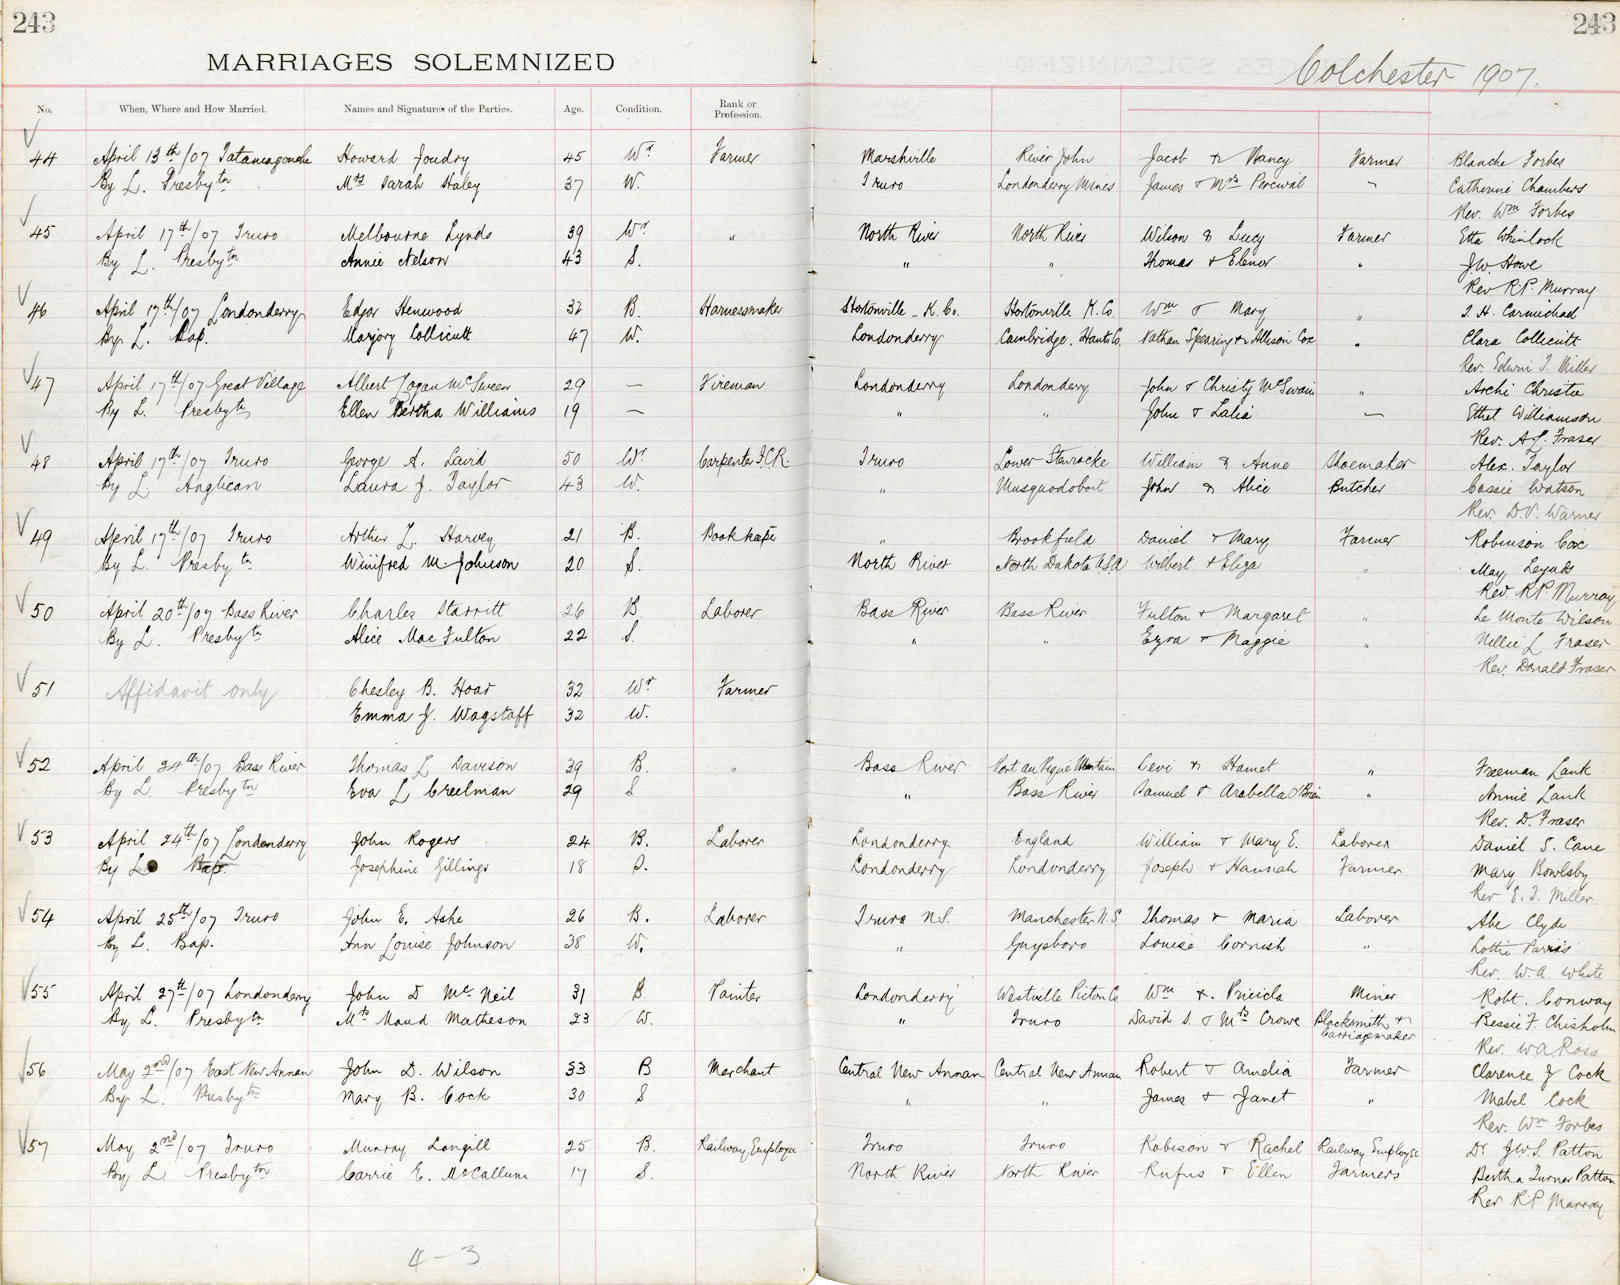 243
243
MARRIAGES SOLEMNIZED
Colchester 1907.
No. When, Where and How Married. Names and Signatures of the Parties. Age. Condition. Rank or Profession.
44 April 13th/07 Tatamagouche Howard Joudry 45 Wr Farmer Marshville River John Jacob & Nancy Farmer Blanche Forbes
By L. Presbytn Mrs Sarah Staley 37 W. Truro Londonderry Mines James & Mrs Percival " Catherine Chambers
Rev. Wm Forbes
45 April 17th/07 Truro Melbourne Lynds 39 Wr " North River North River Wilson & Lucy Farmer Etta Whinlock
By L. Presbytn Annie Nelson 43 S. " " Thomas & Elenor " J.W. Howe
Rev R.P. Murray
46 April 17th/07 Londonderry Edgar Henwood 32 B. Harnessmaker Stortonville - K. Co. Stortonville K. Co. Wm & Mary " I. H. Carmichael
By L. Bap. Marjory Collicutt 47 W. Londonderry Cambridge. Hants Co. Nathan Spearing & Allison Cox " Clara Collicutt
Rev. Edwin I. Miller
47 April 17th/07 Great Village Albert Logan McSween 29 — Fireman Londonderry Londonderry John & Christy McSwain " Archi Christie
By L. Presbytn Ellen Bertha Williams 19 — " " John & Lalia — Ethel Williamson
Rev. A.L. Fraser
48 April 17th/07 Truro George A. Laird 50 Wr Carpenter I.C.R. Truro Lower Stewiacke William & Anne Shoemaker Alex. Taylor
By L. Anglican Laura J. Taylor 43 W. " Musquodoboit John & Alice Butcher Cassie Watson
Rev. D.V. Warner
49 April 17th/07 Truro Arthur L. Harvey 21 B. Bookkeeper " Brookfield Daniel & Mary Farmer Robinson Cox
By L. Presbytn Winifred M. Johnson 20 S. North River North Dakota U.S.A Wilbert & Eliza " May
Rev R.P. Murray
50 April 20th/07 Bass River Charles Starritt 26 B Laborer Bass River Bass River Fulton & Margaret " Le Monte Wilson
By L. Presbytn Alice MacFulton 22 S. " " Ezra & Maggie " Nillie L Fraser
Rev. Donald Fraser
51 Affidavit only Chesley B. Hoar 32 Wr Farmer
Emma J. Wagstaff 32 W.
52 April 24th/07 Bass River Thomas L Davison 39 B. " Bass River Port au Pique Mountain Levi & Hamet " Freeman Lank
By L. Presbytn Eva L Creelman 29 S " Bass River Samuel & Arabella O'Brien " Annie Lank
Rev. D. Fraser
53 April 24th/07 Londonderry John Rogers 24 B. Laborer Londonderry England William & Mary E. Laborer Daniel S. Cane
By L. Bap. Josephine Gillings 18 S. Londonderry Londonderry Joseph & Hannah Farmer Mary Bowlsby
Rev E. I. Miller
54 April 25th/07 Truro John E. Ashe 26 B. Laborer Truro N.S. Manchester N.S. Thomas & Maria Laborer Abe Clyde
By L. Bap. Ann Louise Johnson 38 W. " Guysboro Louise Cornish " Lottie Parris
Rev. W.A. White
55 April 27th/07 Londonderry John D McNeil 31 B. Painter Londonderry Westville Pictou Co Wm & Pricicla Miner Robt. Conway
By L. Presbytn Mrs Maud Matheson 23 W. " Truro David S. & Mrs Crowe Blacksmith & Carriagemaker Bessie F. Chisholm
Rev. W A Ross
56 May 2nd/07 East New Annan John D. Wilson 33 B Merchant Central New Annan Central New Annan Robert & Amelia Farmer Clarence J Cock
By L. Presbytn Mary B. Cock 30 S " " James & Janet " Mabel Cock
Rev. Wm Forbes
57 May 2nd/07 Truro Murray Langill 25 B. Railway Employee Truro Truro Robison & Rachel Railway Employee Dr J.W.S. Patton
By L Presbytn Carrie E. McCallum 17 S. North River North River Rufus & Ellen Farmers Bertha Turner Patton
Rev R.P Murray
4-3